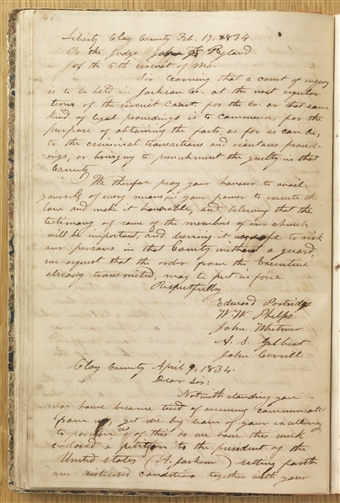 Liberty Clay County Feb. 13, 1834
To the Judge John F Ryland
of the 5th circuit of Mo.
Sir learning that a court of inquiry
is to be held in Jackson Co. at the next regular
term of the circuit Court for the Co. or that some
kind of legal proceedings is to commence, for the
purpose of obtaining the facts, as far as can be,
to the criminal transactions and riotous proceed-
ings, or bringing to punishment the guilty in that
County
We therefore pray your honour to avail
yourself of every means in your power to execute the
law and make it honorable, and believing that the
testimony of some of the members of our church
will be important, and deeming it unsafe to risk
our persons in that County without a guard,
we request that the order from the Executive
already transmitted, may be put in force
Respectfully
Edward Partridge
W. W. Phelps
John Whitmer
A. S. Gilbert
John Corrill
Clay County April 9, 1834.
Dear Sir:
Notwithstanding you
may have become tired of receiving communicati
from us, yet we beg leave of your excellency
to pardon us for this as we have this week
enclosed a petition to the president of the
United States (A. Jackson) setting forth
our distressed condition together with your